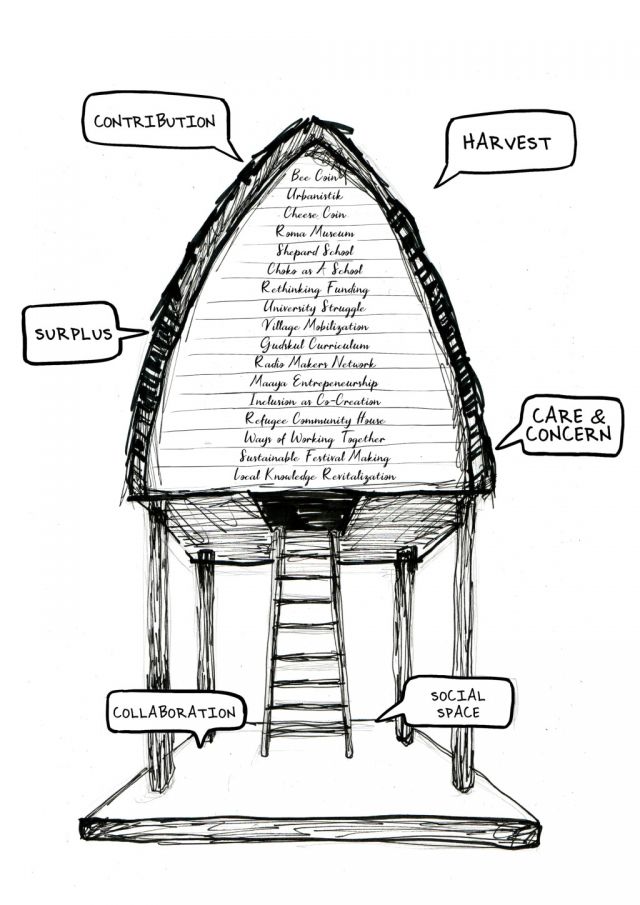 CONTRIBUTION
HARVEST
Bee Coin
Urbanistik
Cheese Coin
Roma Museum
Shepard School
Choko as A School
Rethinking Funding
University Struggle
Village Mobilization
Gudskul Curriculum
Radio Makers Network
Maaya Entrepeneurship
Inclusion as Co-Creation
Refugee Community House
Ways of Working Together
Sustainable Festival Making
Local Knowledge Revitalization
SURPLUS
CARE &
CONCERN
COLLABORATION
SOCIAL
SPACE